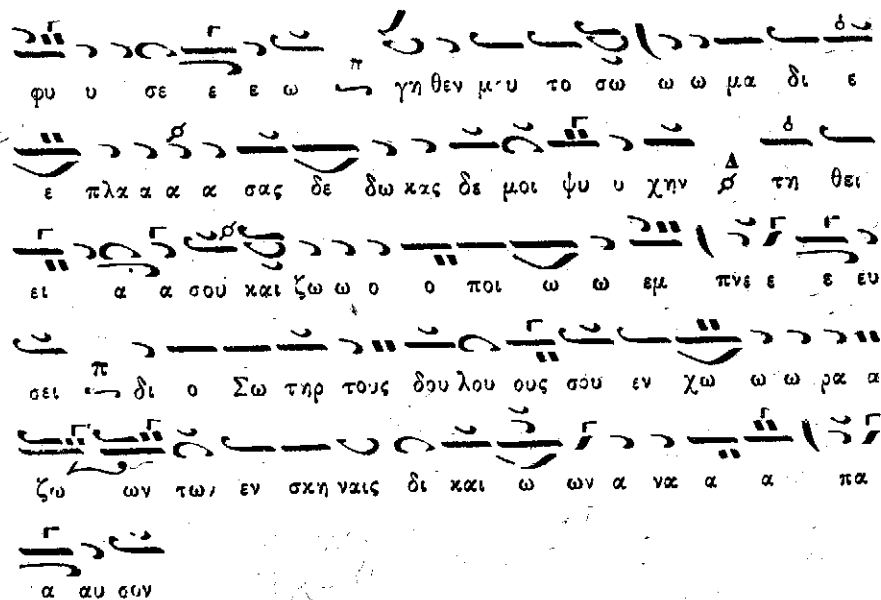 φυ υ σε ε ε ω γη θεν μου το σω ω ω μα δι ε
ε πλα α α α σας δε δω κας δε μοι ψυ υ χην τη θει
ει α α σου και ζω ω ο ο ποι ω ω εμ πνε ε ε ευ
σει δι ο Σω τηρ τους δου λου ους σου εν χω ω ω ρα α
ζω ων των εν σκη ναις δι και ω ων α να α α πα
α αυ σον